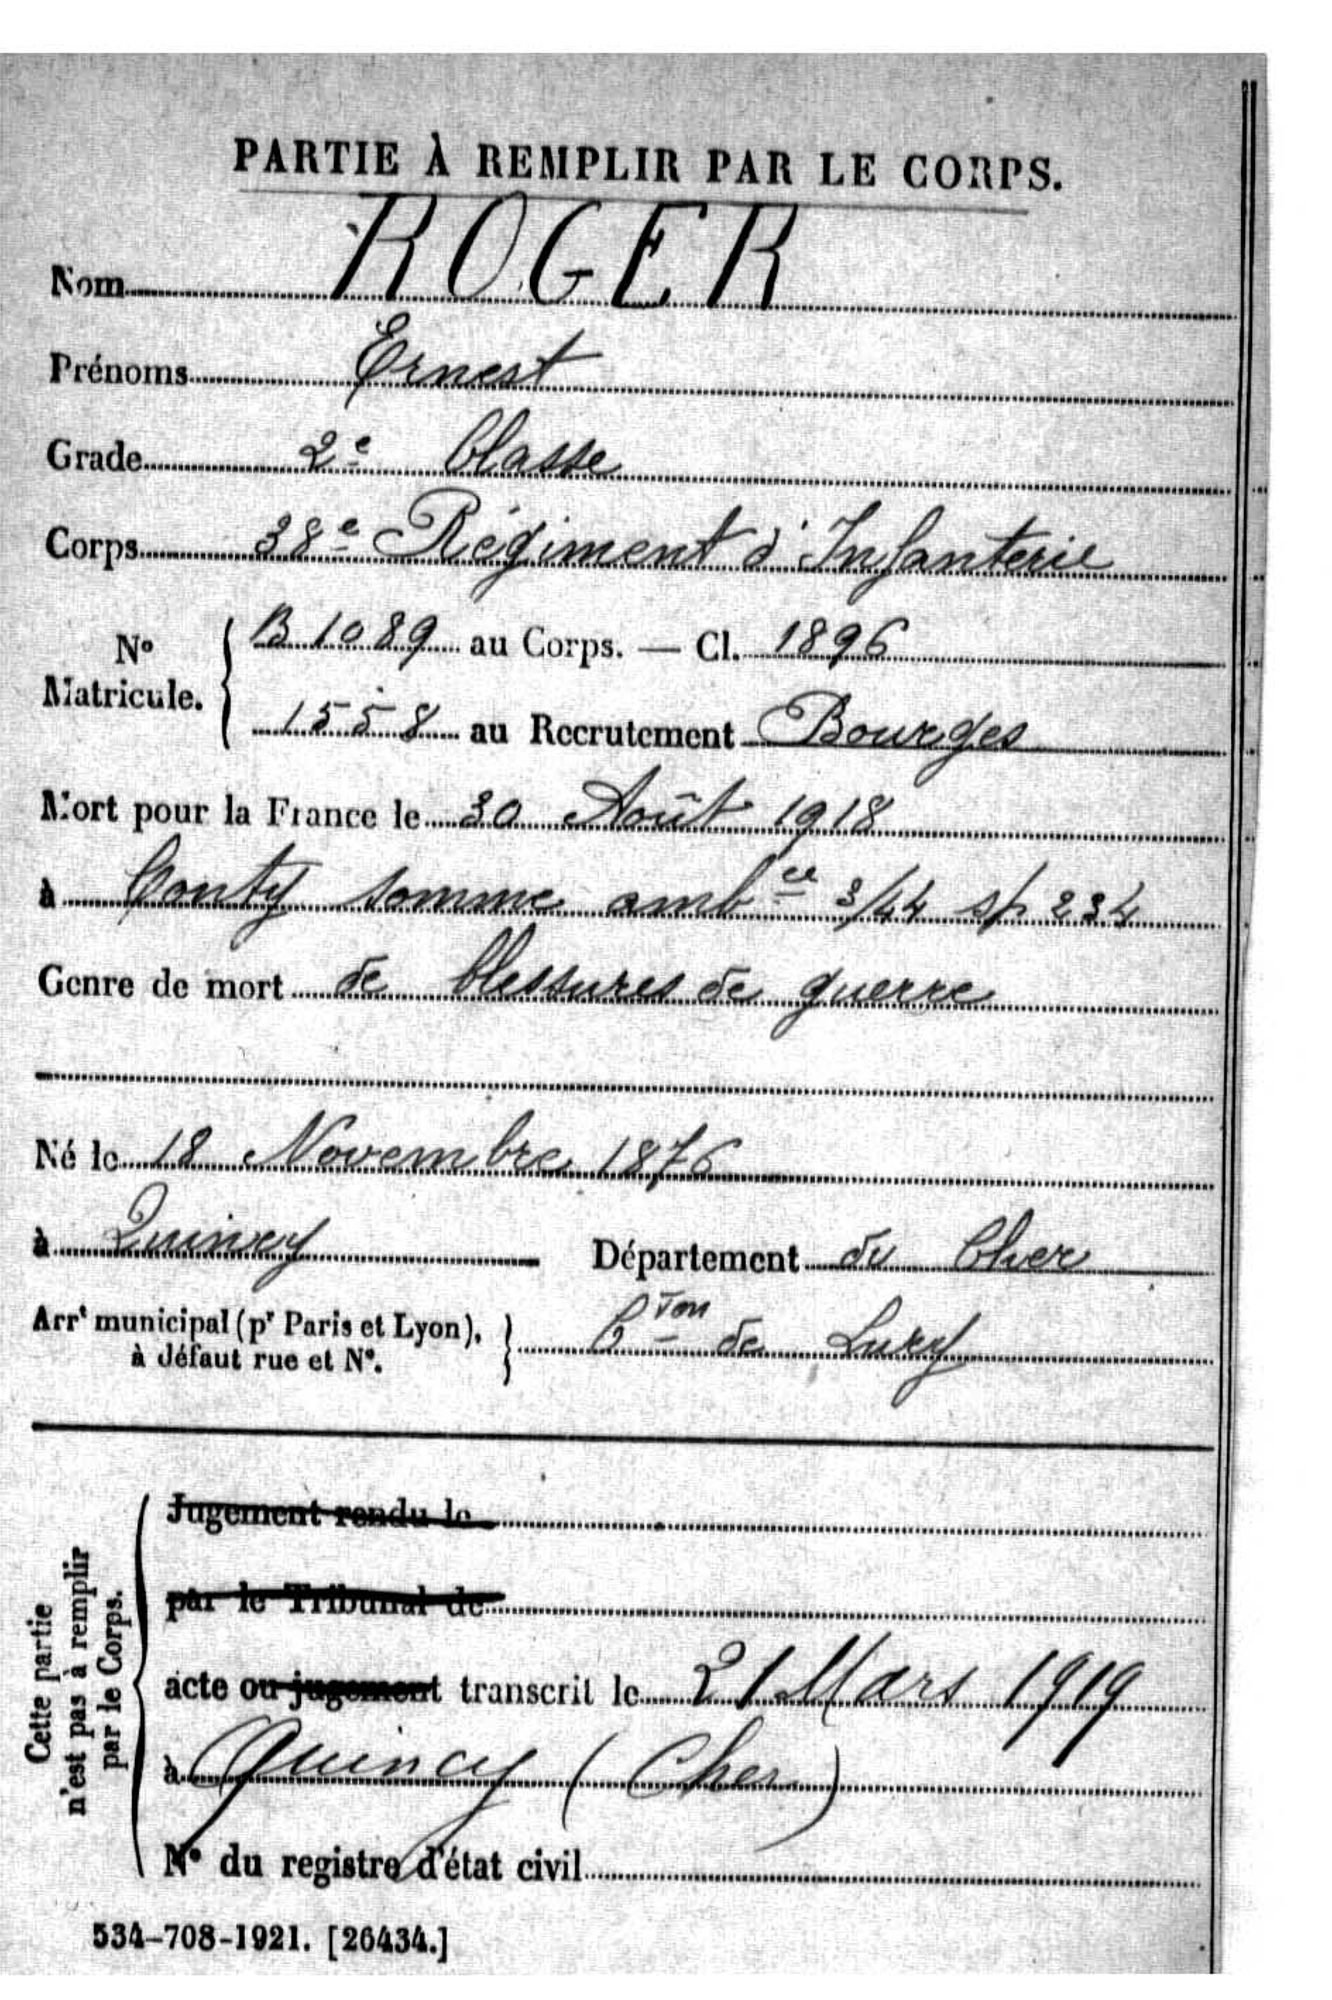 PARTIE À REMPLIR PAR LE CORPS.
Nom ROGER
Prénoms Ernest
Grade 2e Classe
Corps 38e Régiment d'Infanterie
No Matricule. { B 1089 au Corps. — Cl. 1896
1558 au Recrutement Bourges
Mort pour la France le 30 Août 1918
à Conty Somme ambce 3/44 sp 234
Genre de mort de blessures de guerre
Né le 18 Novembre 1876
à Quincy Département du Cher
Arrt municipal (pr Paris et Lyon), } Cton de Lury
à défaut rue et No.
Cette partie n'est pas à remplir par le Corps.
Jugement rendu le
par le Tribunal de
acte ou jugement transcrit le 21 Mars 1919
à Quincy (Cher)
No du registre d'état civil
534-708-1921. [26434.]